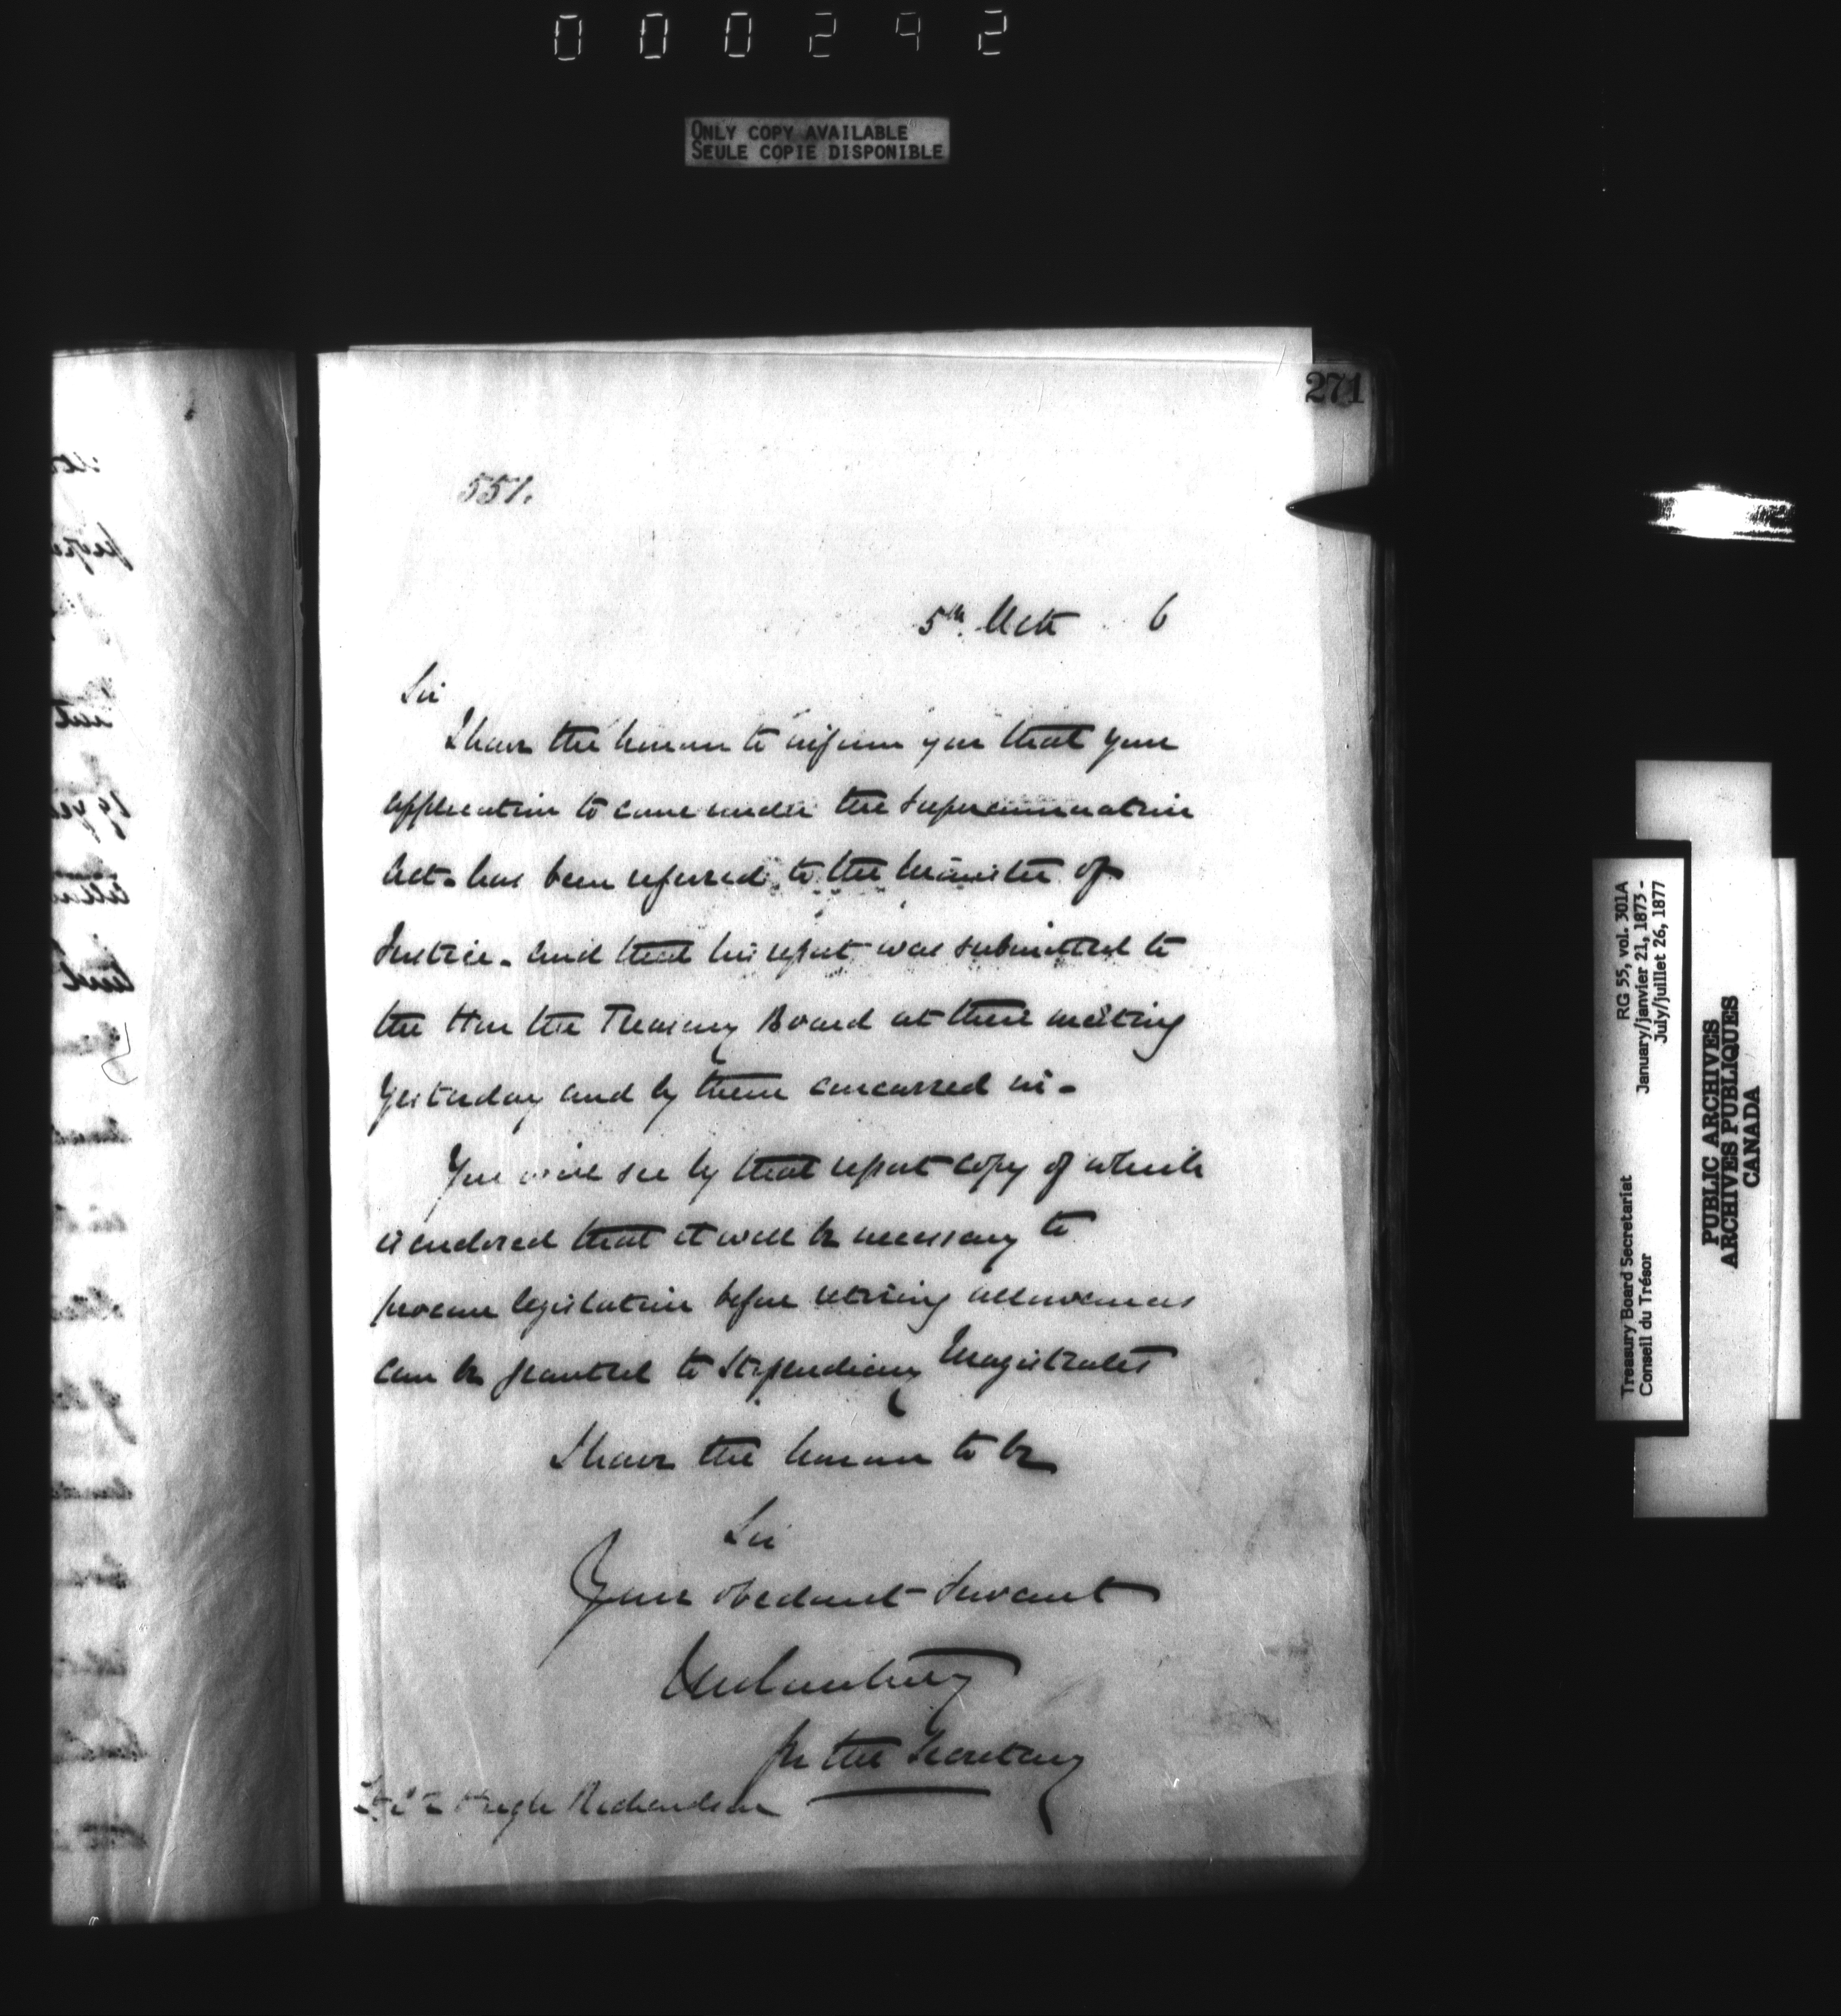 000292
ONLY COPY AVAILABLE
SEULE COPIE DISPONIBLE
271
551.
5th Octr 6
Sir
I have the honour to inform you that your
application to come under the Superannuation
Act - has been referred to the Minister of
Justice - and that his report was submitted to
the Hon the Treasury Board at their meeting
yesterday and by them concurred in -
You will see by that report copy of which
is enclosed that it will be necessary to
procure legislation before retiring allowances
can be granted to Stipendiary Magistrates
I have the honour to be
Sir
Your obedient Servant
for the Secretary
Hugh Richardson
Treasury Board Secretariat RG 55, vol. 301A
Conseil du Trésor January/janvier 21, 1873 -
July/juillet 26, 1877
PUBLIC ARCHIVES
ARCHIVES PUBLIQUES
CANADA